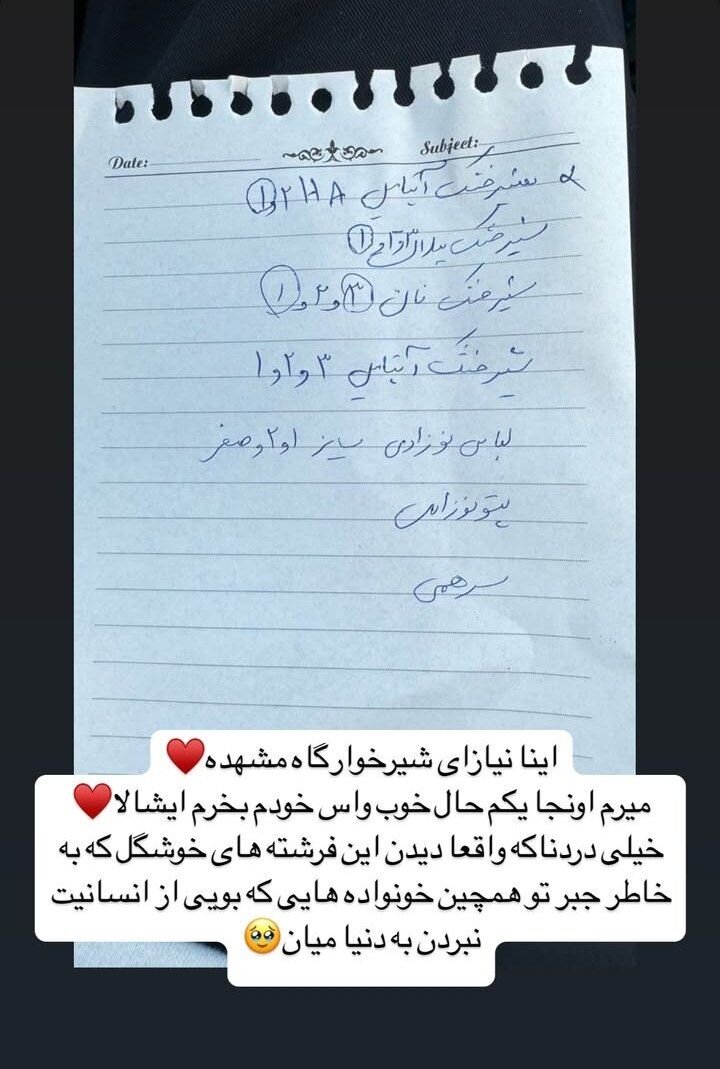 Date: Subject:
شیر خشک آپتامیل HA ۲ و ۱
شیر خشک ببلاک ۳ و ۲ و ۱
شیر خشک نان ۳ و ۲ و ۱
شیر خشک آپتامیل ۳ و ۲ و ۱
لباس نوزادی سایز ۱ و ۲ و صفر
پتو نوزادی
سرهمی
اینا نیازای شیرخوارگاه مشهده♥️
میرم اونجا یکم حال خوب واس خودم بخرم ایشالا♥️
خیلی دردناکه واقعا دیدن این فرشته های خوشگل که به
خاطر جبر تو همچین خونواده هایی که بویی از انسانیت
نبردن به دنیا میان🥹